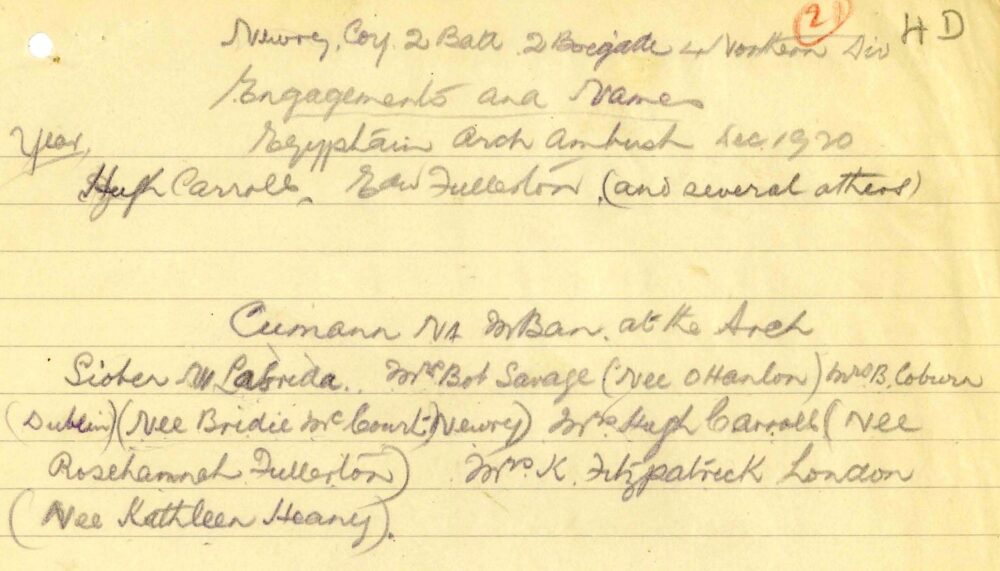 2 HD
Newry, Coy. 2 Batt 2 Brigade 4 Northern Div
Engagements and Names
Year, Egyptain Arch Ambush Dec. 1920
Hugh Carroll, Edw Fullerton, (and several others)
Cumann NA mBan. at the Arch
Siober Labrida. Mrs Bob Savage (Nee OHanlon) Mrs B. Coburn
(Dublin) (Nee Bridie McCourt Newry) Mrs Hugh Carroll (Nee
Rosehannah Fullerton) Mrs K. Fitzpatrick London
(Nee Kathleen Heaney).